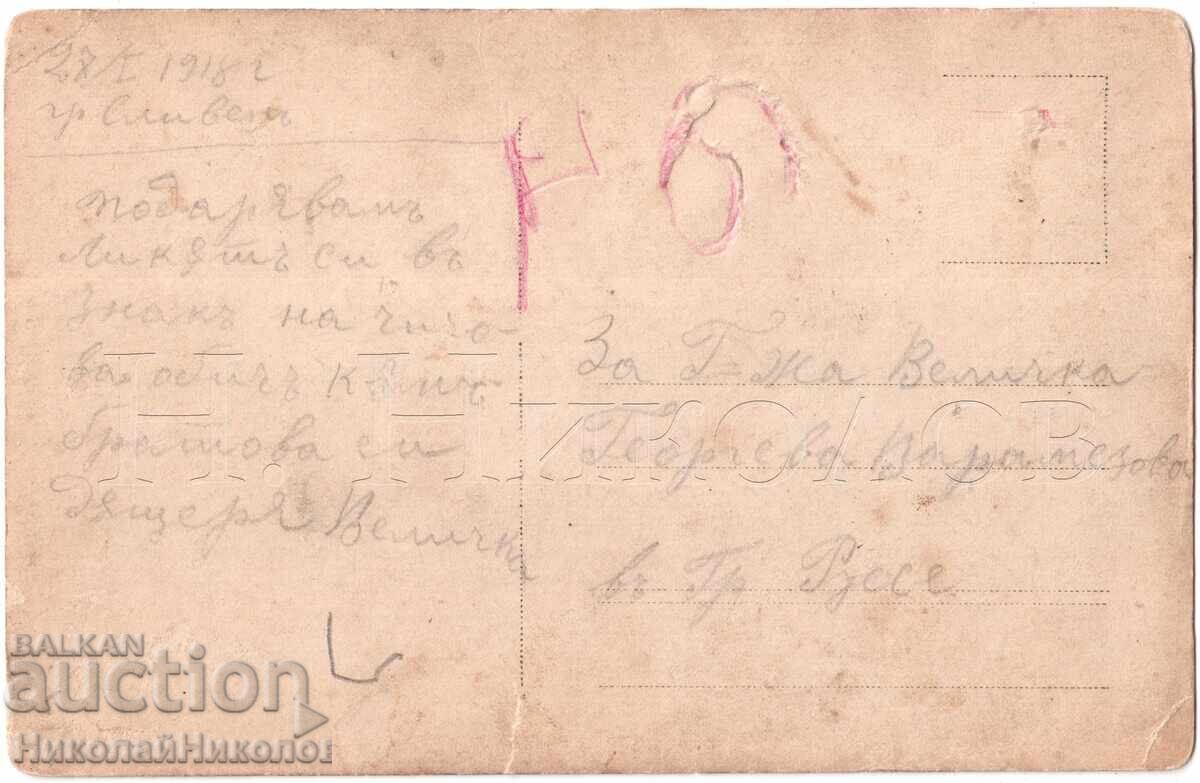 28/I 1918 г
гр Сливенъ
подарявамъ
ликътъ си въ
знакъ на чичо-
ва обичъ къмъ
братова си
дъщеря Величка
За Г-жа Величка
Георгева
въ Гр Русе
Н. НИКОЛОВ
BALKAN
auction
НиколайНиколов